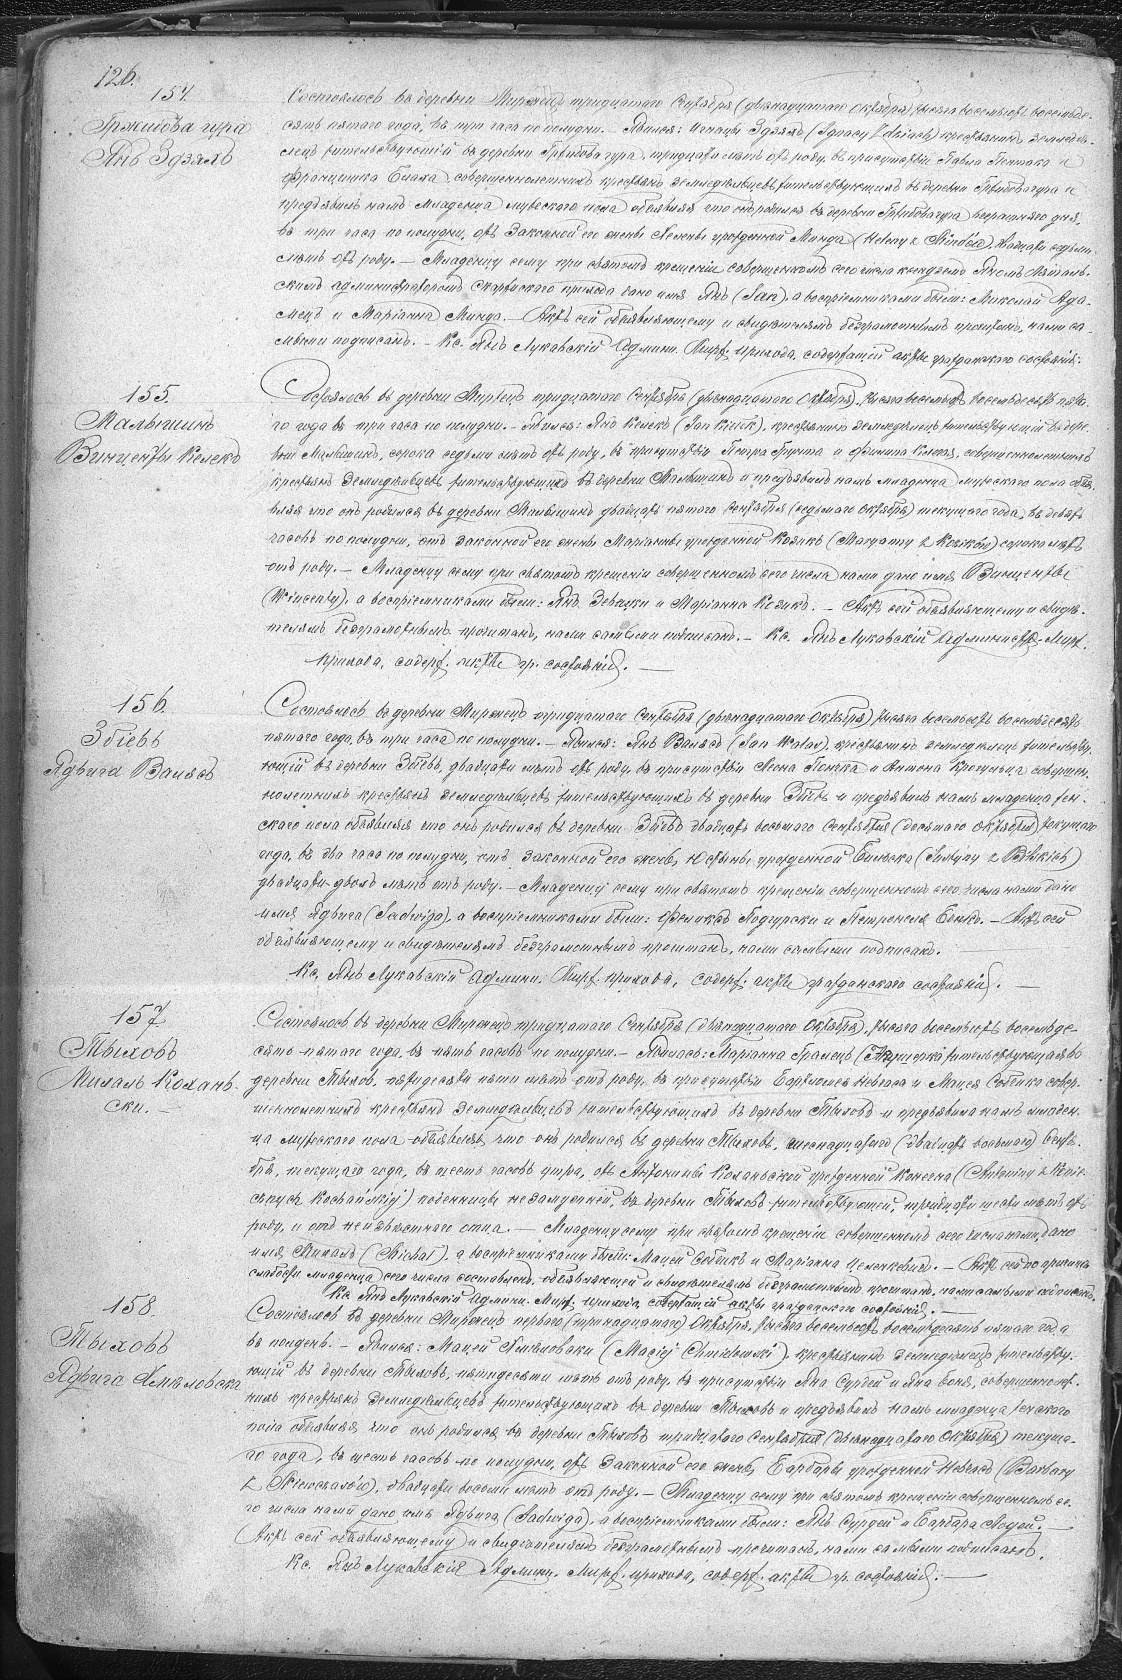 126.
154.
Гржибова гура
Янъ Здзяхъ
Состоялось въ деревни Миржец тридцатаго Сентября (двѣнадцатаго Октября) тысяча восемьсотъ восемьде-
сятъ пятаго года, въ три часа по полудни. Явился: Игнацы Здзяхъ (Ignacy Zdziach) крестьянинъ земледѣ-
лецъ жительствующій въ деревни Гржибовагура, тридцати лѣтъ отъ роду, въ присутствіи Павла и
Францишка совершеннолетнихъ крестьянъ земледѣльцевъ жительствующихъ въ деревни Гржибовагура и
предъявилъ намъ младенца мужескаго пола объявляя что онъ родился въ деревни Гржибовагура вчерашняго дня,
въ три часа по полудни, отъ законной его жены Хелены урожденной Минда (Heleny z Mindów), двадцати седьми
лѣтъ отъ роду. — Младенцу сему при святомъ крещеніи совершенномъ сего числа ксендземъ Яномъ
скимъ администраторомъ прихода дано имя Янъ (Jan), а воспріемниками были: Миколай Ада-
мецъ и Маріанна Минда. — Актъ сей объявляющему и свидѣтелямъ безграмотнымъ прочтенъ, нами са-
мыми подписанъ. — Кс. Янъ Лукавскій Админи. Мирж. прихода, содержащій акты гражданскаго состоянія.
155.
Малышинъ
Винценты Келекъ
Состоялось въ деревни Миржецъ тридцатаго Сентября (двѣнадцатаго Октября), тысяча восемьсотъ восемьдесятъ пята-
го года въ три часа по полудни. — Явился: Янъ Келекъ (Jan Kiełek), крестьянинъ земледѣлецъ жительствующій въ дере-
вни Малышинъ, сорока седьми лѣтъ отъ роду, въ присутствіи Петра и Филипа совершеннолетнихъ
крестьянъ земледѣльцевъ жительствующихъ въ деревни Малышинъ и предъявилъ намъ младенца мужескаго пола объя-
вляя что онъ родился въ деревни Малышинъ двадцать пятаго Сентября (седьмаго Октября) текущаго года, въ девять
часовъ по полудни, отъ законной его жены Маріанны урожденной Козикъ (Maryanny z Kozików) сорока лѣтъ
отъ роду. — Младенцу сему при святомъ крещеніи совершенномъ сего числа нами дано имя Винценты
(Wincenty), а воспріемниками были: Янъ и Маріанна Козикъ. — Актъ сей объявляющему и свидѣ-
телямъ безграмотнымъ прочитанъ, нами самыми подписанъ. — Кс. Янъ Лукавскій Администр. Мирж.
прихода, содерж. акты гр. состоянія. —
156.
Збіевъ
Ядвига Валясъ
Состоялось въ деревни Миржецъ тридцатаго Сентября (двѣнадцатаго Октября) тысяча восемьсотъ восемьдесятъ
пятаго года, въ три часа по полудни. — Явился: Янъ Валясъ (Jan Walas), крестьянинъ земледѣлецъ жительству-
ющій въ деревни Збіевъ, двадцати лѣтъ отъ роду, въ присутствіи Леона и Антона совершен-
нолетнихъ крестьянъ земледѣльцевъ жительствующихъ въ деревни Збіевъ и предъявилъ намъ младенца жен-
скаго пола объявляя что онъ родился въ деревни Збіевъ двадцать восьмаго Сентября (десятаго Октября) текущаго
года, въ два часа по полудни, отъ законной его жены, Юстыны урожденной Бильска (Justyny z Bilskich)
двадцати двохъ лѣтъ отъ роду. — Младенцу сему при святомъ крещеніи совершенномъ сего числа нами дано
имя Ядвига (Jadwiga), а воспріемниками были: Феликсъ Подгурски и Петронеля — Актъ сей
объявляющему и свидѣтелямъ безграмотнымъ прочитанъ, нами самыми подписанъ.
Кс. Янъ Лукавскій Админи. Мирж. прихода, содерж. акты гражданскаго состоянія. —
157.
Тыховъ
Михалъ Кохань-
ски. —
Состоялось въ деревни Миржецъ тридцатаго Сентября (двѣнадцатаго Октября), тысяча восемьсотъ восемьде-
сятъ пятаго года, въ пять часовъ по полудни. — Явилась: Маріанна Гралецъ (Акушерка) жительствующая въ
деревни Тыхов, пятидесяти пяти лѣтъ отъ роду, въ присутствіи Бартломея и Мацея совер-
шеннолетнихъ крестьянъ земледѣльцевъ жительствующихъ въ деревни Тыховъ и предъявила намъ младен-
ца мужескаго пола объявляя, что онъ родился въ деревни Тыховъ, шеснадцатаго (двадцать восьмаго) Сентя-
бря, текущаго года, въ шесть часовъ утра, отъ Антонины Коханьской урожденной (Antoniny z
Kochańskiej) поденницы незамужней, въ деревни Тыховъ жительствующей, тридцати шести лѣтъ отъ
роду, и отъ неизвѣстнаго отца. — Младенцу сему при святомъ крещеніи совершенномъ сего числа нами, дано
имя Михалъ (Michał), а воспріемниками были: Мацей и Маріанна — Актъ сей по причинѣ
слабости младенца сего числа составленъ, объявляющей и свидѣтелямъ безграмотнымъ прочитанъ, нами самыми подписанъ.
Кс. Янъ Лукавскій Админи. Мирж. прихода, содержащій акты гражданскаго состоянія. —
158
Тыховъ
Ядвига Хмѣловска
Состоялось въ деревни Миржецъ перваго (тринадцатаго) Октября, тысяча восемьсотъ восемьдесятъ пятаго года
въ полдень. — Явился: Мацей Хмѣловски (Maciej Chmielowski), крестьянинъ земледѣлецъ жительству-
ющій въ деревни Тыховъ, пятидесяти лѣтъ отъ роду, въ присутствіи Яна Сурдей и Яна совершеннолет-
нихъ крестьянъ земледѣльцевъ жительствующихъ въ деревни Тыховъ и предъявилъ намъ младенца женскаго
пола объявляя, что онъ родился въ деревни Тыховъ тридцатаго Сентября (двѣнадцатаго Октября) текуща-
го года, въ шесть часовъ по полудни, отъ законной его жены, Барбары урожденной (Barbary
z двадцати восьми лѣтъ отъ роду. — Младенцу сему при святомъ крещеніи совершенномъ се-
го числа нами дано имя Ядвига (Jadwiga), а воспріемниками были: Янъ Сурдей и Барбара —
Актъ сей объявляющему и свидѣтелямъ безграмотнымъ прочитанъ, нами самыми подписанъ.
Кс. Янъ Лукавскій Админи. Мирж. прихода, содерж. акты гр. состоянія. —